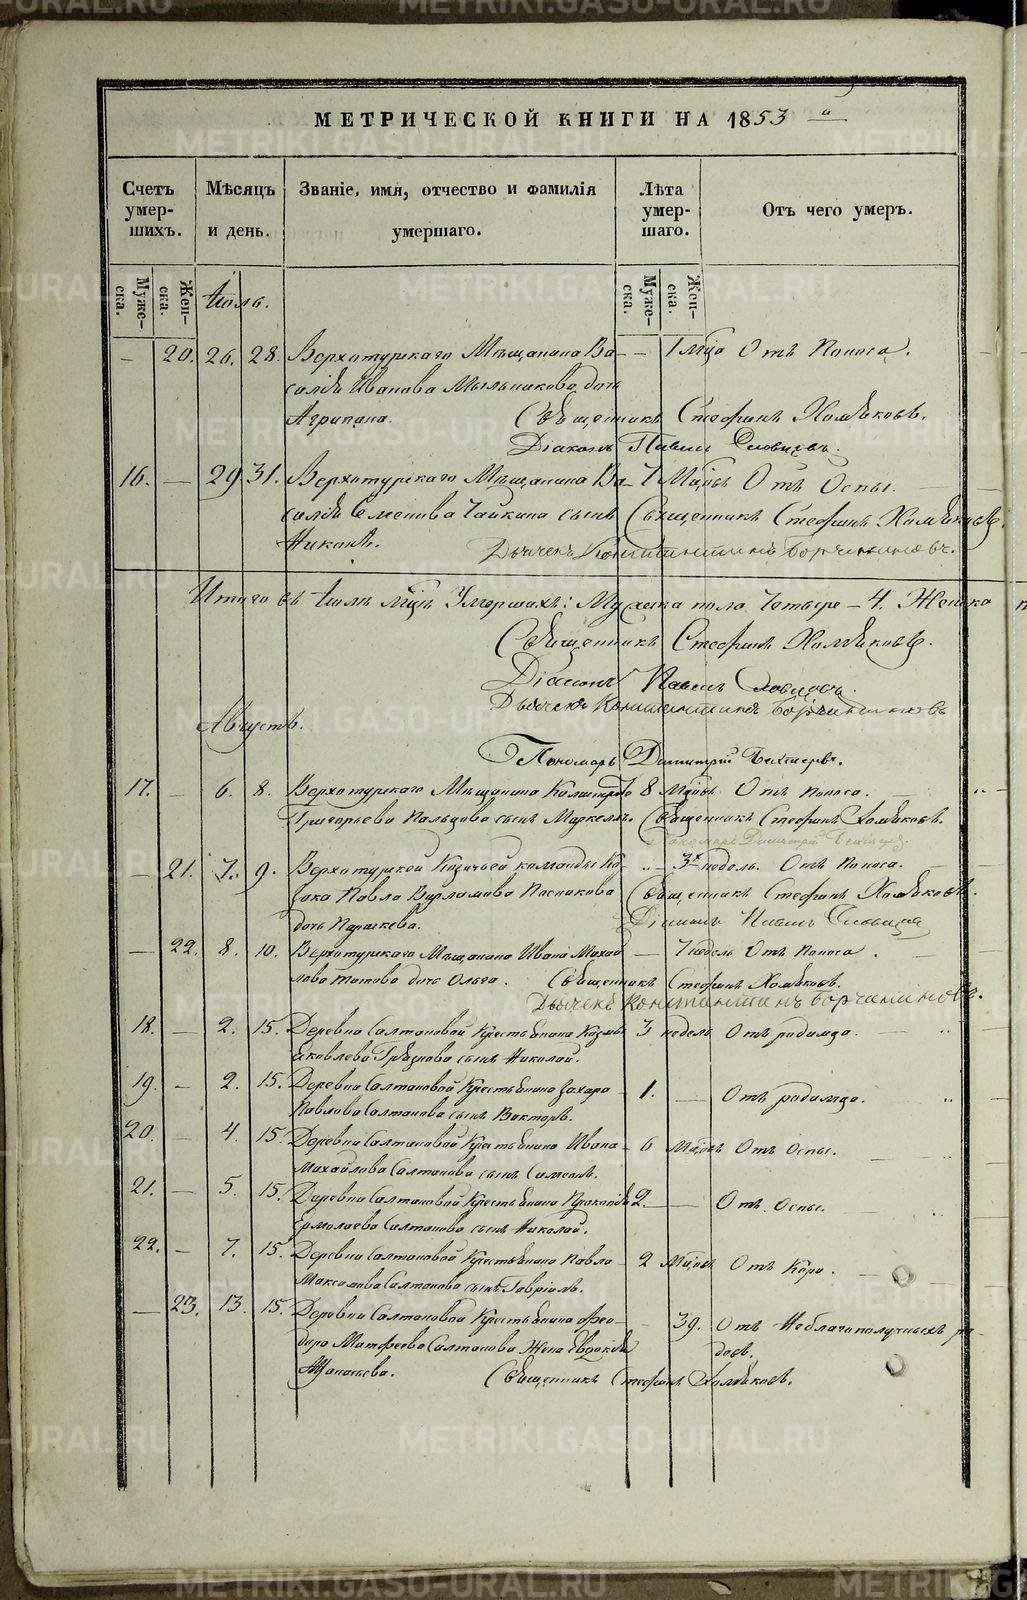 МЕТРИЧЕСКОЙ КНИГИ НА 1853
Счетъ умер- шихъ.
Мѣсяцъ и день.
Званіе, имя, отчество и фамилія умершаго.
Лѣта умер- шаго.
Отъ чего умеръ.
Муже- ска.
Жен- ска.
Муже- ска.
Жен- ска.
Іюль.
— 20. 26. 28. Верхотурскаго Мѣщанина Ва — — 1 мѣс. Отъ Поноса.
силія Иванова Мыльникова дочь
Агрипина. Священникъ Стефанъ Хомяковъ.
Діаконъ Павелъ Словцовъ.
16. — 29 31. Верхотурскаго Мѣщанина Ва 7 Мѣсяц. Отъ Оспы.
силія Семенова Чайкина сынъ Священникъ Стефанъ Хомяковъ.
Никонъ. Дьячекъ Константинъ
Итого въ Іюлѣ мѣсяцѣ Умершихъ: Мужеска пола Четыре — 4. Женска
Священникъ Стефанъ Хомяковъ.
Діаконъ Павелъ Словцовъ.
Дьячекъ Константинъ
Августъ.
Пономарь Димитрій
17. — 6. 8. Верхотурскаго Мѣщанина 8 Мѣсяц. Отъ Поноса.
Григорьева Пальцова сынъ Маркеллъ. Священникъ Стефанъ Хомяковъ.
Пономарь Димитрій
— 21. 7. 9. Верхотурской Козачьей команды Ко „ — 3х недель. Отъ Поноса.
зака Павла Варламова Поснакова Священникъ Стефанъ Хомяковъ.
дочь Параскева. Діаконъ Павелъ Словцовъ
— 22. 8. 10. Верхотурскаго Мѣщанина Ивана Михай — 7 недель Отъ Поноса.
лова Титова дочь Ольга. Священникъ Стефанъ Хомяковъ.
Дьячекъ Константинъ
18. — 2. 15. Деревни Салтановой Крестьянина Козмы 3 недель Отъ родимца.
Яковлева Грязнова сынъ Николай.
19. — 2. 15. Деревни Салтановой Крестьянина Захара — 1. — Отъ родимца.
Павлова Салтанова сынъ Викторъ.
20. — 4. 15. Деревни Салтановой Крестьянина Ивана — 6 Мѣсяц. Отъ Оспы.
Михайлова Салтанова сынъ Симеонъ.
21. — 5. 15. Деревни Салтановой Крестьянина Прокопія 2. — Отъ Оспы.
Ермолаева Салтанова сынъ Николай.
22. — 7. 15. Деревни Салтановой Крестьянина Павла — 2 Мѣсяц. Отъ Кори.
Максимова Салтанова сынъ Гавріилъ.
— 23. 13. 15. Деревни Салтановой Крестьянина Фео- — 39. Отъ Неблагополучныхъ ро-
дора Матфеева Салтанова Жена Евдокія довъ.
Афанасьева. Священникъ Стефанъ Хомяковъ.
METRIKI.GASO-URAL.RU